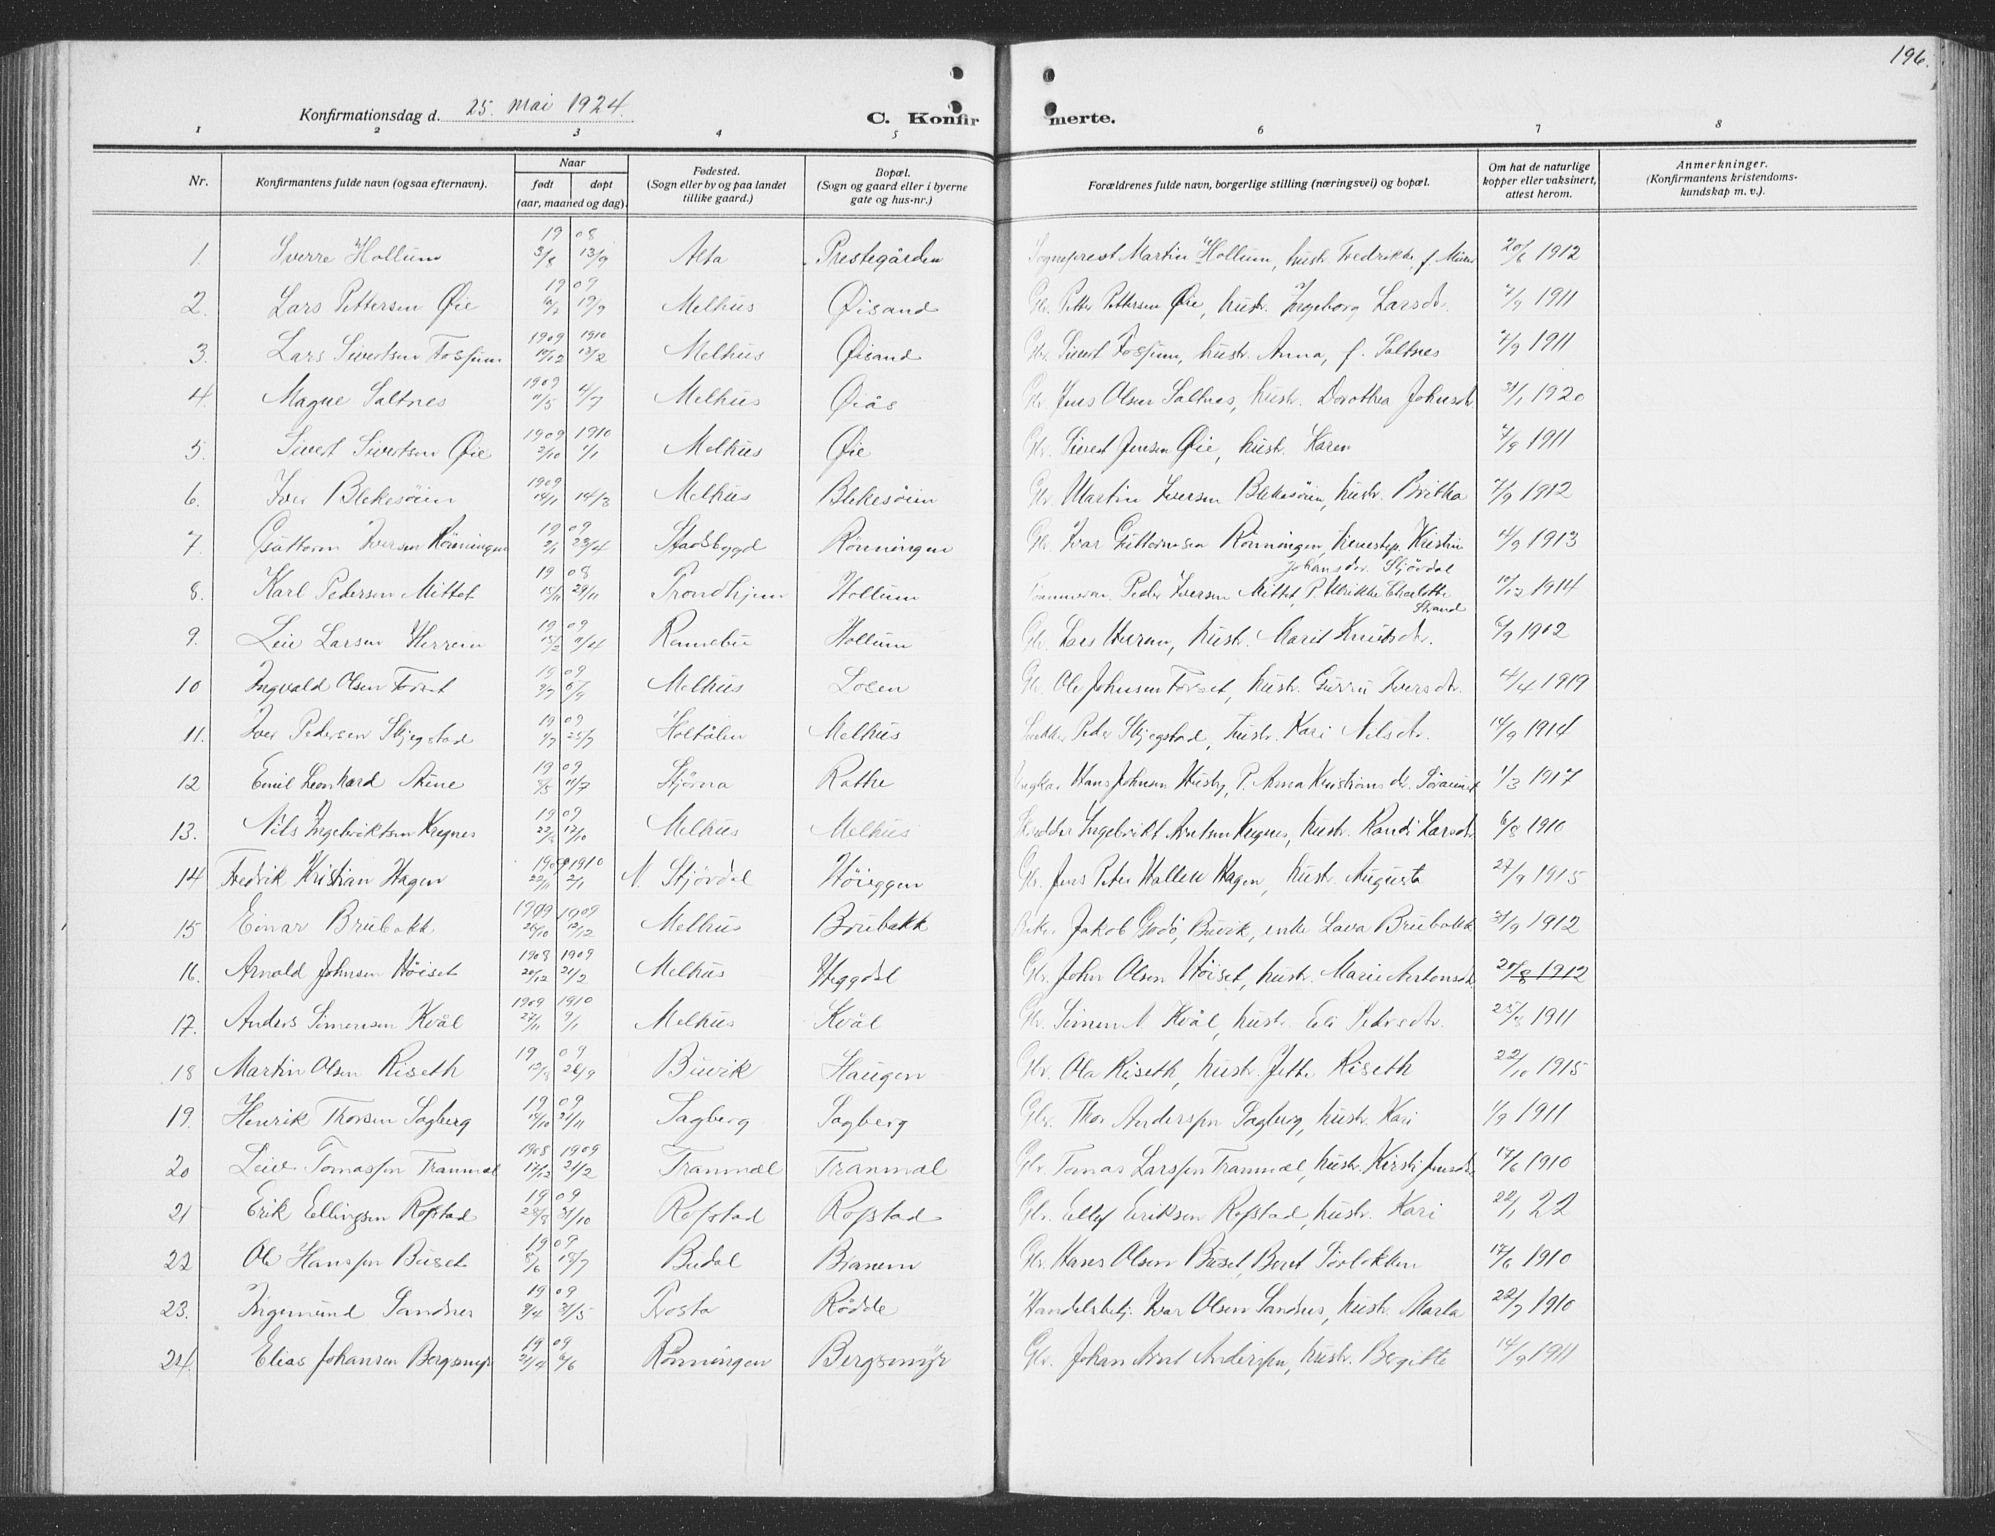 196.
Konfirmationsdag d. 25. mai 1924.
C. Konfirmerte.
1 2 3 4 5 6 7 8
Nr. Konfirmantens fulde navn (ogsaa efternavn). Naar født døpt (aar, maaned og dag). Fødested. (Sogn eller by og paa landet tillike gaard.) Bopæl. (Sogn og gaard eller i byerne gate og hus-nr.) Forældrenes fulde navn, borgerlige stilling (næringsvei) og bopæl. Om hat de naturlige kopper eller vaksinert, attest herom. Anmerkninger. (Konfirmantens kristendoms-kundskap m. v.).
1. Sverre Hollum 1908 3/8 13/9 Alta Prestegården Sogneprest Martin Hollum, hustr. Fredrikke, f. 20/6 1912
2. Lars Pettersen Øie 1909 19/9 Melhus Øisand Gbr. Petter Pettersen Øie, hustr. Ingeborg Larsdtr. 1911
3. Lars Sivertsen Fossum 1909 1910 13/2 Melhus Øisand Gbr. Sivert Fossum, hustr. Anna, f. Saltnes 7/9 1911
4. Magne Saltnes 1909 11/5 4/7 Melhus Øiås Gbr. Jens Olsen Saltnes, hustr. Dorothea Johnsdtr. 31/1 1920
5. Sivert Sivertsen Øie 1909 1910 2/10 1/1 Melhus Øie Gbr. Sivert Jensen Øie, hustr. Karen 1911
6. Iver Blekesöien 1909 14/1 14/3 Melhus Blekesöien Gbr. Martin Iversen Blekesöien, hustr. Britha 7/9 1912
7. Guttorm Iversen Rönningen 1909 2/1 23/4 Stadsbygd Rönningen Gbr. Ivar Guttormsen Rönningen, Kristin Johansdtr. Stjördal 4/9 1913
8. Karl Pedersen Mittet 1908 15/11 29/11 Trondhjem Hollum Peder Iversen Mittet, P. Ulrikke Charlotte Strand 10/12 1914
9. Leiv Larsen Herrem 1909 11/4 Rennebu Hollum Gbr. Lars Herrem, hustr. Marit Knutsdtr. 6/9 1902
10 Ingvald Olsen Forset 1909 Melhus Loen Gbr. Ole Johnsen Forset, hustr. Gurru Iversdtr. 4/4 1919
11. Iver Pedersen Skjegstad 1909 1/7 25/7 Holtålen Melhus Peder Skjegstad, hustr. Kari Nilsdtr. 14/9 1914
12 Emil Leonhard Aune 1909 11/7 Stjörna Rathe Hans Johnsen Husby, P. Anna 1/3 1917
13. Nils Ingebriktsen Kregnes 1909 17/10 Melhus Melhus Ingebrikt Arntsen Kregnes, hustr. Randi Larsdtr. 6/8 1910
14 Fredrik Kristian Hagen 1909 1910 22/11 2/1 N. Stjördal Höieggen Gbr. Jens Peter Hallen Hagen, hustr. Augusta 27/9 1915
15 Einar Brubakk 1909 1909 26/10 12/12 Melhus Brubakk Jakob Godö, Buvik, enke Lava Brubakk 1912
16. Arnold Johnsen Höiset 1908 1909 20/12 21/2 Melhus Heggdal Gbr. John Olsen Höiset, hustr. Marie Antonsdtr. 20/8 1912
17. Anders Simonsen Kvål 1909 1910 27/11 9/1 Melhus Kvål Gbr. Simon A. Kvål, hustr. Eli Pedersdtr. 25/8 1911
18 Martin Olsen Riseth 1909 12/8 26/9 Buvik Haugen Gbr. Ola Riseth, hustr. Jette Riseth 22/10 1915
19. Henrik Thorsen Sagberg 1909 21/11 Sagberg Sagberg Gbr. Thor Anderssen Sagberg, hustr. Kari 1/9 1911
20 Leiv Tomassen Tranmæl 1908 1909 17/12 21/2 Tranmæl Tranmæl Gbr. Tomas Larssen Tranmæl, hustr. Kirsti Jensdtr. 17/6 1910
21 Erik Ellingsen Rofstad 1909 28/8 31/10 Rofstad Rofstad Gbr. Eriksen Rofstad, hustr. Kari 22/1 22
22 Ole Hanssen Buset 1909 8/6 18/7 Budal Bjanem Gbr. Hans Olsen Buset, Beret Sörlökken 17/6 1910
23. Ingemund Sandnes 1909 9/4 31/5 Frosta Rödde Handelsbetj. Ivar Olsen Sandnes, hustr. Marta 22/7 1910
24. Elias Johansen Bergsmyr 1909 21/4 6/6 Rönningen Bergsmyr Gbr. Johan Arnt Anderssen, hustr. Bergitte 14/9 1911